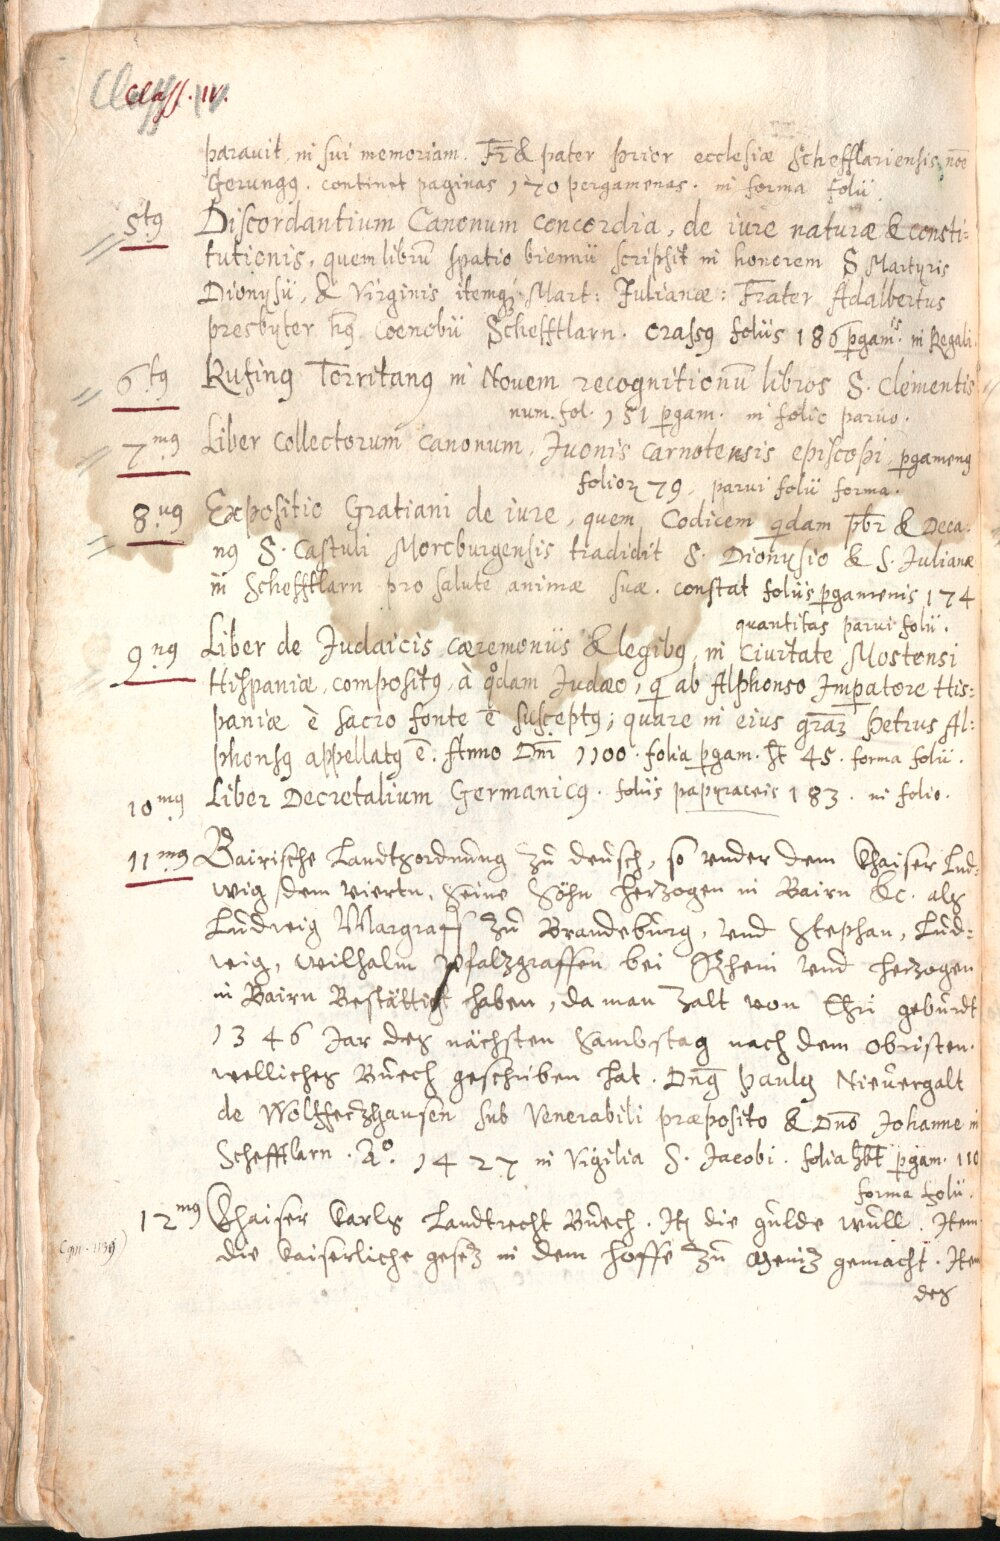 Class. IV.
parauit, in sui memoriam. Fr̄ & pater prior ecclesiæ Schefflariensis, nōe
Gerungꝯ. continet paginas 170 pergamenas. in forma folii
5tꝯ Discordantium Canonum concordia, de iure naturæ & consti=
tutionis, quem librū spatio biennii scripsit in honorem S Martyris
Dionysii, & Virginis itemqꝫ Mart: Julianæ: Frater Adalbertus
presbyter hꝯ coenobii Schefftlarn. crassꝯ foliis 186 pgamis. in Regali.
6tꝯ Rufinꝯ Torritanꝯ in Novem recognitionū libros S. Clementis
num. fol. 151 pgam. in folio paruo.
7mꝯ Liber Collectorum canonum, Iuonis carnotensis episcopi, pgamenꝯ
folioꝝ 79, parui folii forma.
8uꝯ Expositio Gratiani de iure, quem Codicem qdam pbr̄ & Deca:
nꝯ S. Castuli Morcburgensis tradidit S. Dionysio & S. Julianæ
in Schefftlarn pro salute animæ suæ. constat foliis pgamenis 174
quantitas parui folii.
9nꝯ Liber de Judaicis cæremoniis & legibꝯ, in Ciuitate Mostensi
Hispaniæ, compositꝯ, à qdam Judæo, q ab Alphonso Impatore His=
paniæ è sacro fonte ē susceptꝯ; quare in eius gr̄aꝫ Petrus Al=
phonsꝯ appellatꝯ ē. Anno Dn̄i 1100. folia pgam. ht 45. forma folii.
10mꝯ Liber Decretalium Germanicꝯ. foliis papyraceis 183. in folio.
11mꝯ Bairische Landtsordnung zu deusch, so vnder dem Khaiser Lud=
wig dem viertn, seine Söhn Herzogen in Bairn &c. als
Ludwig Margraff zu Brandeburg, vnd Stephan, Lud=
wig, Wilhalm Pfalzgraffen bei Rhein vnd Herzogen
in Bairn Bestättigt haben, da man zalt von Chri geburdt
1346 Jar des nächsten Sambstag nach dem obristen.
welliches Buech geschriben hat. Dn̄ꝯ Paulꝯ Nieuergalt
de Wolffertzhausen sub Venerabili præposito & Dn̄o Johanne in
Schefftlarn. Ao. 1427 in Vigilia S. Jacobi. folia hbt pgam. 110
forma folii.
12mꝯ Khaiser Carls Landtrecht Buech. Itꝫ die gulde bull. Item
Cgm. 1139
die Kaiserliche gesez in dem hoffe zu Meniz gemacht. Item
des